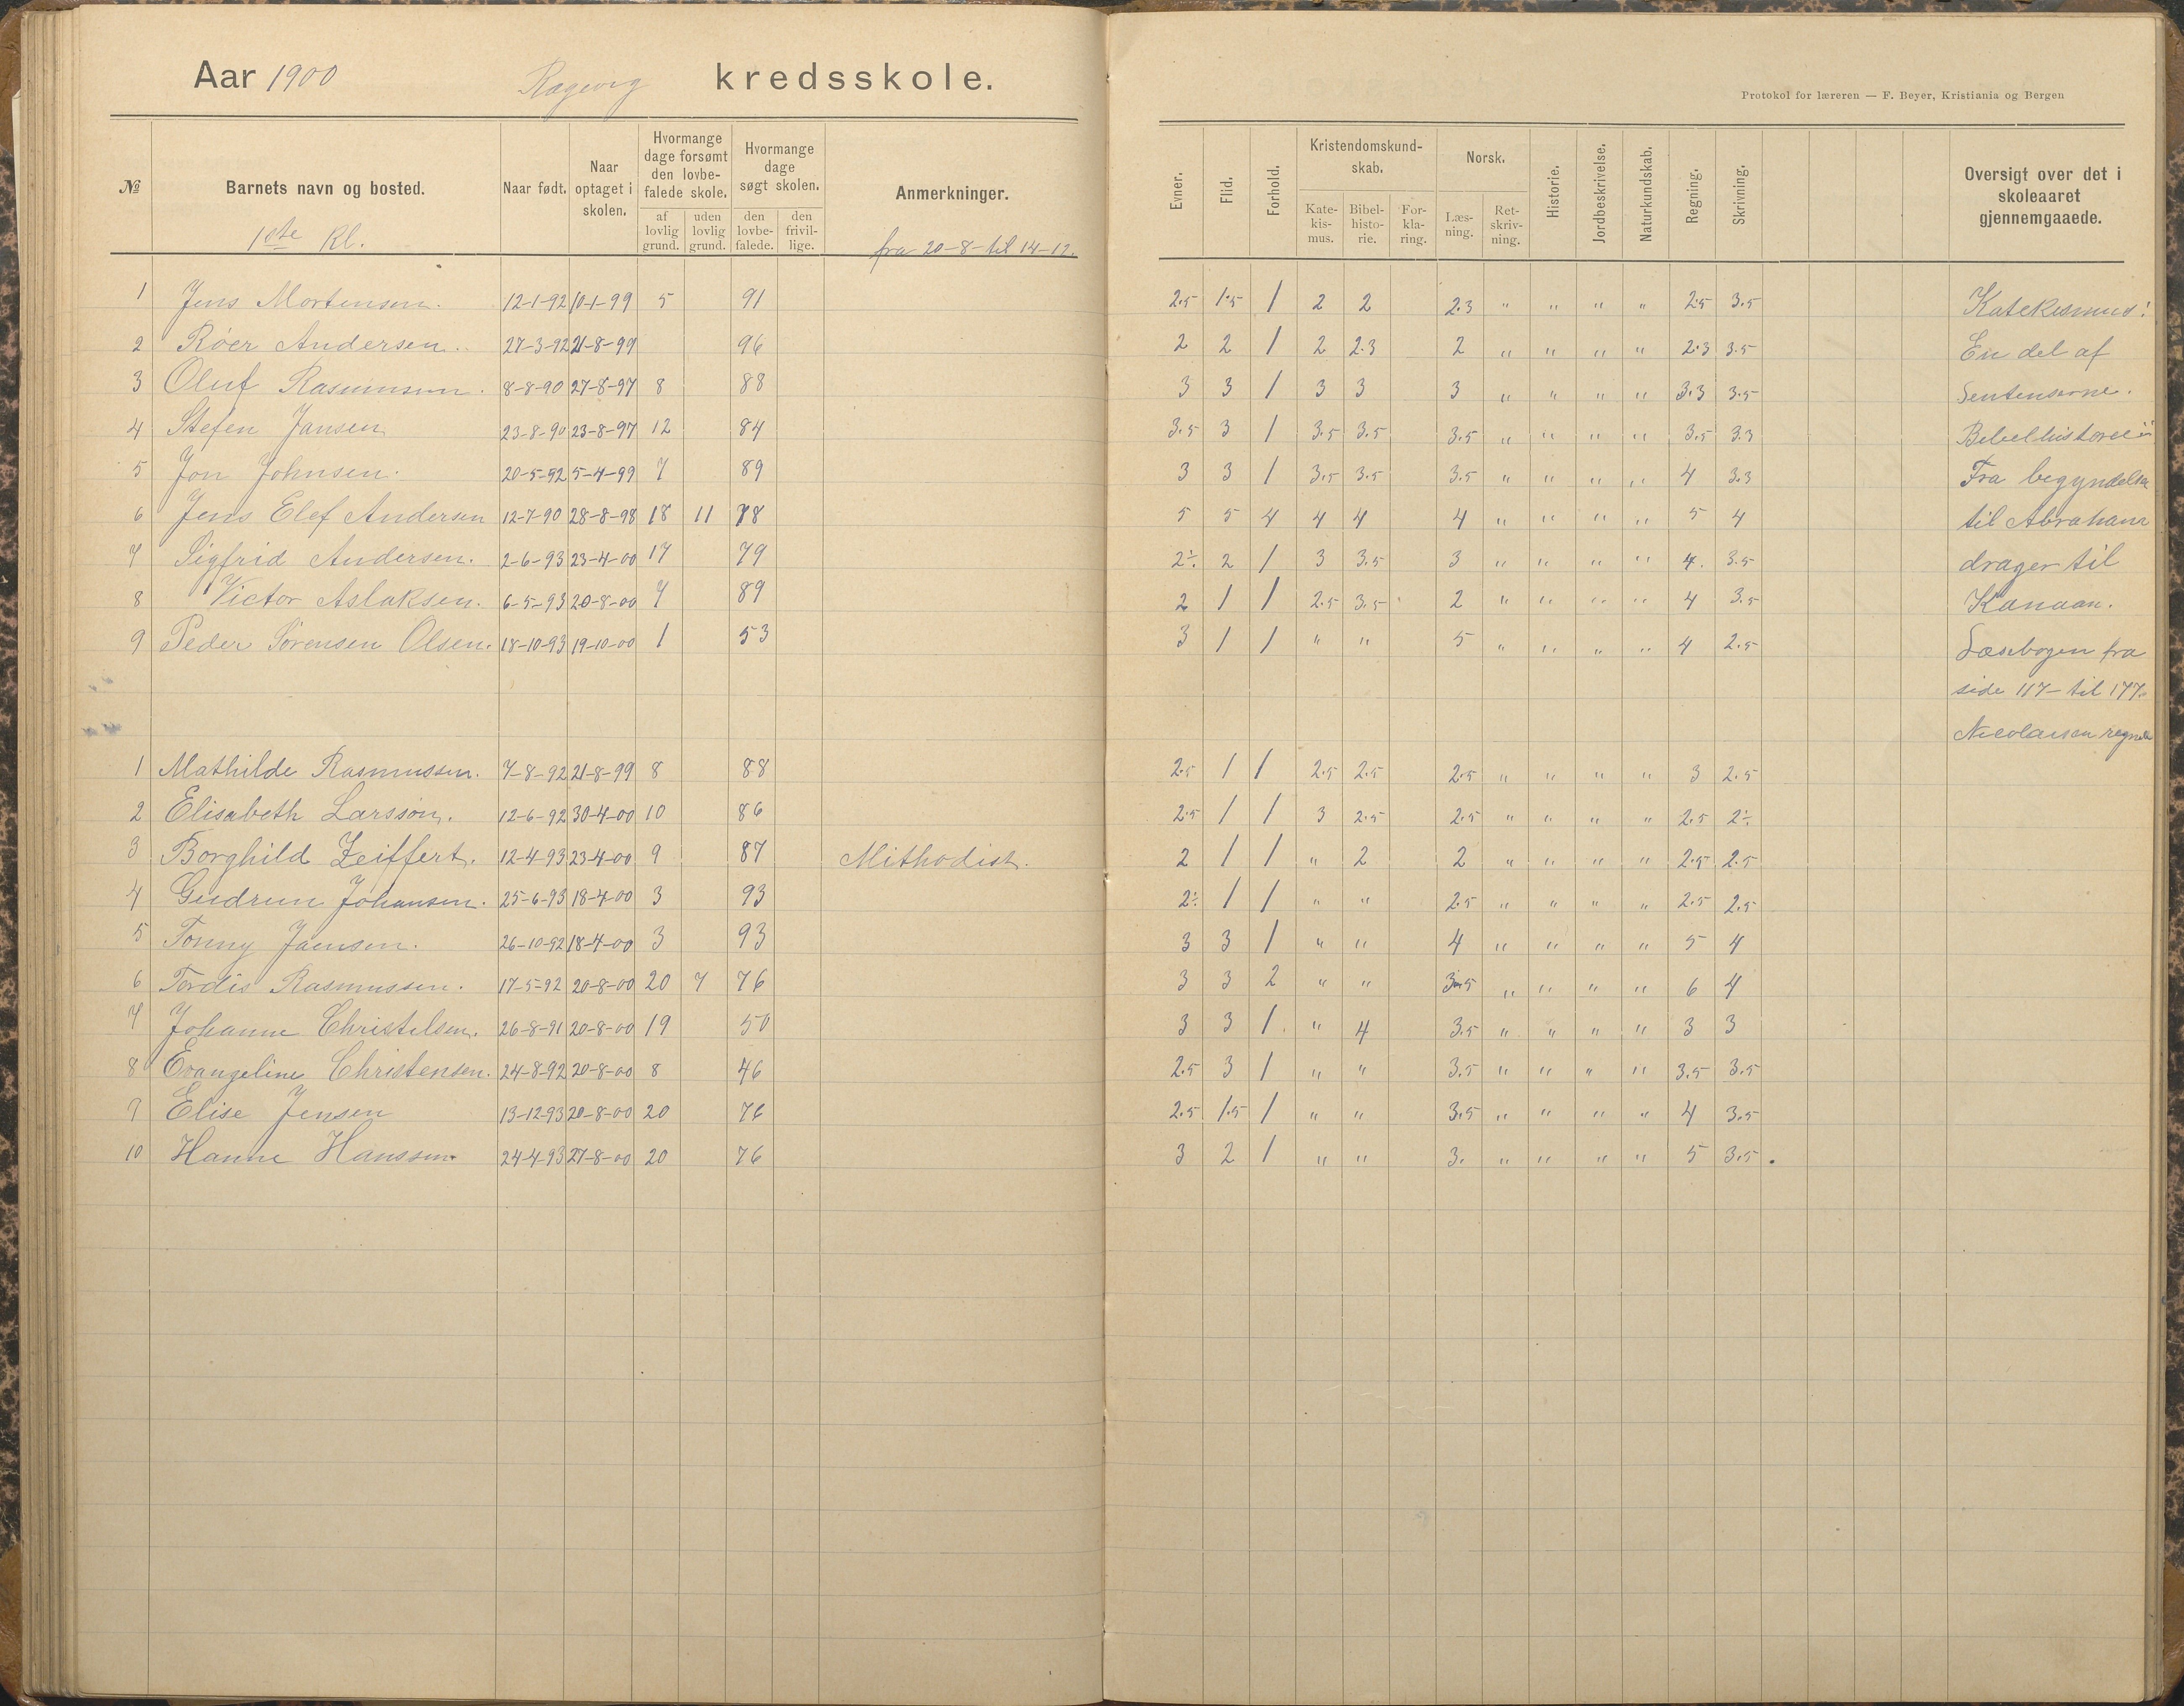 Aar 1900 Ragevig kredsskole.
Protokol for læreren — F. Beyer, Kristiania og Bergen
№ Barnets navn og bosted. Naar født. Naar optaget i skolen. Hvormange dage forsømt den lovbefalede skole. af lovlig grund. uden lovlig grund. Hvormange dage søgt skolen. den lovbefalede. den frivillige. Anmerkninger.
Evner. Flid. Forhold. Kristendomskundskab. Katekismus. Bibelhistorie. Forklaring. Norsk. Læsning. Retskrivning. Historie. Jordbeskrivelse. Naturkundskab. Regning. Skrivning. Oversigt over det i skoleaaret gjennemgaaede.
1ste Kl. fra 20-8- til 14-12.
1 Jens Mortensen. 12-1-92 10-1-99 5 91 2.5 1.5 1 2 2 2.3 " " " " 2.5 3.5 Katekismus:
2 Róer Andersen. 27-3-92 21-8-99 96 2 2 1 2 2.3 2 " " " " 2.3 3.5 En del af
3 Oluf Rasmussen. 8-8-90 27-8-97 8 88 3 3 1 3 3 3 " " " " 3.3 3.5 Sentenserne.
4 Stefen Jansen 23-8-90 23-8-97 12 84 3.5 3 1 3.5 3.5 3.5 " " " " 3.5 3.3 Bibelhistorie:
5 Jon Johnsen. 20-5-92 5-4-99 7 89 3 3 1 3.5 3.5 3.5 " " " " 4 3.3 Fra begyndelsen
6 Jens Elef Andersen 12-7-90 28-8-98 18 11 78 5 5 4 4 4 4 " " " " 5 4 til Abraham
7 Sigfrid Andersen. 2-6-93 23-4-00 17 79 2÷ 2 1 3 3.5 3 " " " " 4. 3.5 drager til
8 Victor Aslaksen. 6-5-93 20-8-00 7 89 2 1 1 2.5 3.5 2 " " " " 4 3.5 Kanaan.
9 Peder Sørensen Olsen. 18-10-93 19-10-00 1 53 3 1 1 " " 5 " " " " 4 2.5 Læsebogen fra
side 117- til 177.
Nicolaisen
1 Mathilde Rasmussen. 7-8-92 21-8-99 8 88 2.5 1 1 2.5 2.5 2.5 " " " " 3 2.5
2 Elisabeth Larsson. 12-6-92 30-4-00 10 86 2.5 1 1 3 2.5 2.5 " " " " 2.5 2÷
3 Borghild Zeiffert. 12-4-93 23-4-00 9 87 Mithodist. 2 1 1 " 2 2 " " " " 2.5 2.5
4 Gudrun Johansen. 25-6-93 18-4-00 3 93 2÷ 1 1 " " 2.5 " " " " 2.5 2.5
5 Tonny Jaensen. 26-10-92 18-4-00 3 93 3 3 1 " " 4 " " " " 5 4
6 Tordis Rasmussen. 17-5-92 20-8-00 20 7 76 3 3 2 " " 3.5 " " " " 6 4
7 Johanne Christelsen. 26-8-91 20-8-00 19 50 3 3 1 " 4 3.5 " " " " 3 3
8 Evangeline Christensen. 24-8-92 20-8-00 8 46 2.5 3 1 " " 3.5 " " " " 3.5 3.5
9 Elise Jensen 13-12-93 20-8-00 20 76 2.5 1.5 1 " " 3.5 " " " " 4 3.5
10 Hanne Hanssen. 24-4-93 27-8-00 20 76 3 2 1 " " 3. " " " " 5 3.5.